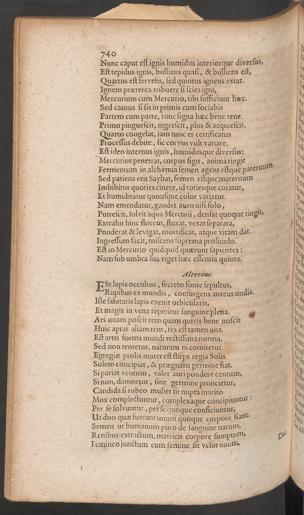 740
Nunc caput est ignis humidus interiorque diversus,
Est tepidus ignis, bulliens quasi, & bulliens est,
Quartus est fervens, sed quintus igneus extat.
Ignem præterea tribuere si scies igni,
Mercurium cum Mercurio, tibi sufficiunt hæc.
Sed cautus si sis in primis cum sociabis
Partem cum parte, tunc signa hæc bene tene.
Primo pinguescit, nigrescit, plus & acquiescit,
Quarto congelat, iam tunc es certificatus
Processus debite, sic corvus vult variare.
Est ideo internus ignis, humidusque diversus:
Mercurius penetrat, corpus figit, anima tingit
Fermentum in alchemia semen agens estque paternum.
Sed patiens erit Saybar, semen estque maternum
Imbibitur quoties cinere, id totiesque curatur,
Et humiditatur quousque color variatur.
Nam emendatur, gaudet auro nisi solo,
Putrescit, solvit aqua Mercurii, densat quoque tingit,
Extrahit hinc florem, fluxat, vexat separata,
Ponderat & levigat, mortificat, atque vitam dat.
Ingressum facit, miscens suprema profundo.
Est in Mercurio quidquid quærunt sapientes:
Nam sub umbra sua viget hæc essentia quinta.
Alterius.
Est lapis occultus, secreto fonte sepultus,
Rupibus ex mundis, consurgens aureus undis.
Iste salutaris lapis evenit orbicularis,
Et magis in vena reperitur sanguine plena.
Ars unam poscit rem quam quivis bone noscit
Huic aptat aliam rem, res est tamen una.
Est artis forma mundi rectissima norma.
Sed non teneretur, naturam ni comitetur.
Egregia prolis mater est stirps regia Solis
Solem concipiat, & prægnans germine fiat.
Si pariat ventum, valet auri pondere centum,
Si non, damnetur, sine germine proicietur,
Candida si rubeo mulier sit nupta marito
Mox complectuntur, complexaque concipiuntur:
Per se solvuntur, per se quoque conficiuntur,
Ut duo quæ fuerant unum quoque corpore fiant.
Semen ut humanum puro de sanguine natum,
Renibus extractum, matricis corpore sumptum,
Femineo junctum cum semine sit velut unum,